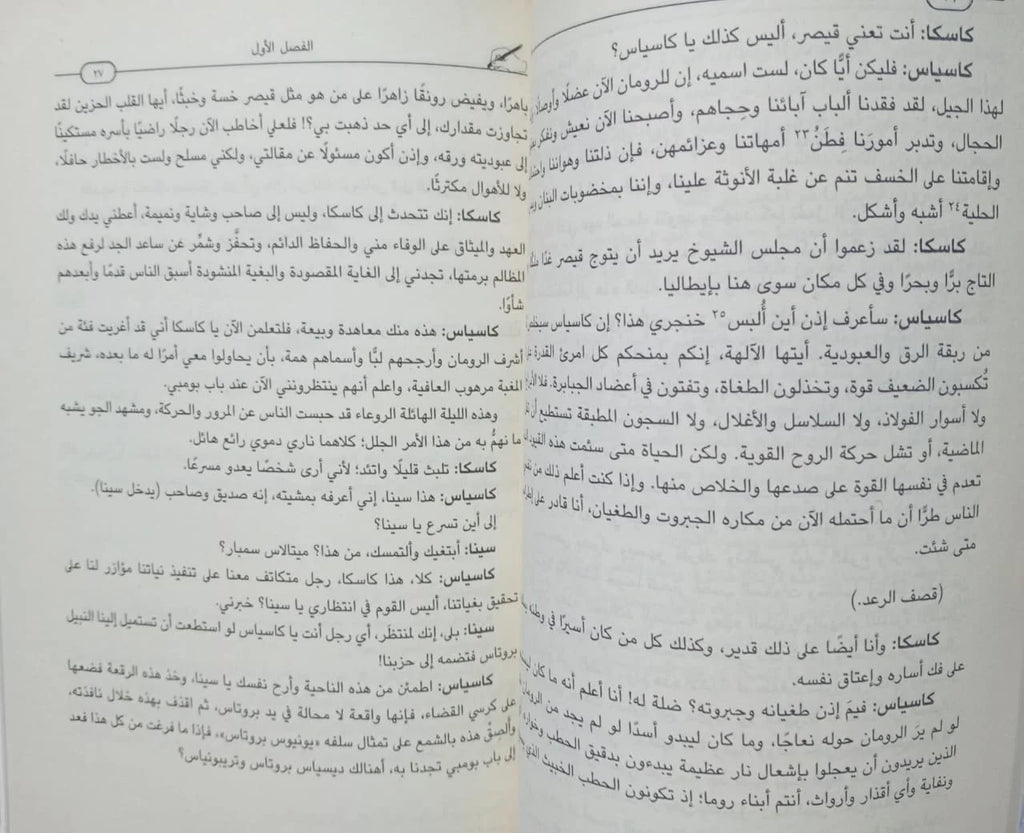 كاسكا: أنت تعني قيصر، أليس كذلك يا كاسياس؟
كاسياس: فليكن أيًّا كان، لست اسميه، إن للرومان الآن عضلًا وأوصالًا
لهذا الجيل، لقد فقدنا ألباب آبائنا وحِجاهم، وأصبحنا الآن نعيش ونفكر
الحجال، وتدبر أمورَنا فِطَنُ ٢٣ أمهاتنا وعزائمهن، فإن ذلتنا وهواننا
وإقامتنا على الخسف تنم عن غلبة الأنوثة علينا، وإننا بمخضوبات البنان
الحلية ٢٤ أشبه وأشكل.
كاسكا: لقد زعموا أن مجلس الشيوخ يريد أن يتوج قيصر غدًا
التاج برًّا وبحرًا وفي كل مكان سوى هنا بإيطاليا.
كاسياس: سأعرف إذن أين أُلبس ٢٥ خنجري هذا؟ إن كاسياس
من ربقة الرق والعبودية. أيتها الآلهة، إنكم بمنحكم كل امرئ القدرة
تُكسبون الضعيف قوة، وتخذلون الطغاة، وتفتون في أعضاد الجبابرة. فلا
ولا أسوار الفولاذ، ولا السلاسل والأغلال، ولا السجون المطبقة تستطيع أن
الماضية، أو تشل حركة الروح القوية. ولكن الحياة متى سئمت هذه القيود
تعدم في نفسها القوة على صدعها والخلاص منها. وإذا كنت أعلم ذلك من
الناس طرًّا أن ما أحتمله الآن من مكاره الجبروت والطغيان، أنا قادر على
متى شئت.
(قصف الرعد.)
كاسكا: وأنا أيضًا على ذلك قدير، وكذلك كل من كان أسيرًا في وطنه
على فك أساره وإعتاق نفسه.
كاسياس: فيمَ إذن طغيانه وجبروته؟ ضلة له! أنا أعلم أنه ما كان
لو لم يرَ الرومان حوله نعاجًا، وما كان ليبدو أسدًا لو لم يجد من الرومان
الذين يريدون أن يعجلوا بإشعال نار عظيمة يبدءون بدقيق الحطب
ونفاية وأي أقذار وأرواث، أنتم أبناء روما؛ إذ تكونون الحطب الخبيث الذي
الفصل الأول
٢٧
باهرًا، ويفيض رونقًا زاهرًا على من هو مثل قيصر خسة وخبثًا، أيها القلب الحزين لقد
تجاوزت مقدارك، إلى أي حد ذهبت بي؟! فلعلي أخاطب الآن رجلًا راضيًا بأسره مستكينًا
إلى عبوديته ورقه، وإذن أكون مسئولًا عن مقالتي، ولكني مسلح ولست بالأخطار حافلًا،
ولا للأهوال مكترثًا.
كاسكا: إنك تتحدث إلى كاسكا، وليس إلى صاحب وشاية ونميمة، أعطني يدك ولك
العهد والميثاق على الوفاء مني والحفاظ الدائم، وتحفَّز وشمِّر عن ساعد الجد لرفع هذه
المظالم برمتها، تجدني إلى الغاية المقصودة والبغية المنشودة أسبق الناس قدمًا وأبعدهم
شأوًا.
كاسياس: هذه منك معاهدة وبيعة، فلتعلمن الآن يا كاسكا أني قد أغريت فئة من
أشرف الرومان وأرجحهم لبًّا وأسماهم همة، بأن يحاولوا معي أمرًا له ما بعده، شريف
المغبة مرهوب العافية، واعلم أنهم ينتظرونني الآن عند باب بومبي.
وهذه الليلة الهائلة الروعاء قد حبست الناس عن المرور والحركة، ومشهد الجو يشبه
ما نهمُّ به من هذا الأمر الجلل؛ كلاهما ناري دموي رائع هائل.
كاسكا: تلبث قليلًا واتئد؛ لأني أرى شخصًا يعدو مسرعًا.
كاسياس: هذا سينا، إني أعرفه بمشيته، إنه صديق وصاحب (يدخل سينا).
إلى أين تسرع يا سينا؟
سينا: أبتغيك وألتمسك، من هذا؟ ميتالاس سمبار؟
كاسياس: كلا، هذا كاسكا، رجل متكاتف معنا على تنفيذ نياتنا مؤازر لنا على
تحقيق بغياتنا، أليس القوم في انتظاري يا سينا؟ خبرني.
سينا: بلى، إنك لمنتظَر، أي رجل أنت يا كاسياس لو استطعت أن تستميل إلينا النبيل
بروتاس فتضمه إلى حزبنا!
كاسياس: اطمئن من هذه الناحية وأرح نفسك يا سينا، وخذ هذه الرقعة فضعها
على كرسي القضاء، فإنها واقعة لا محالة في يد بروتاس، ثم اقذف بهذه خلال نافذته،
وألصِقْ هذه بالشمع على تمثال سلفه «يونيوس بروتاس»، فإذا ما فرغت من كل هذا فعد
إلى باب بومبي تجدنا به، أهنالك ديسياس بروتاس وتريبونياس؟